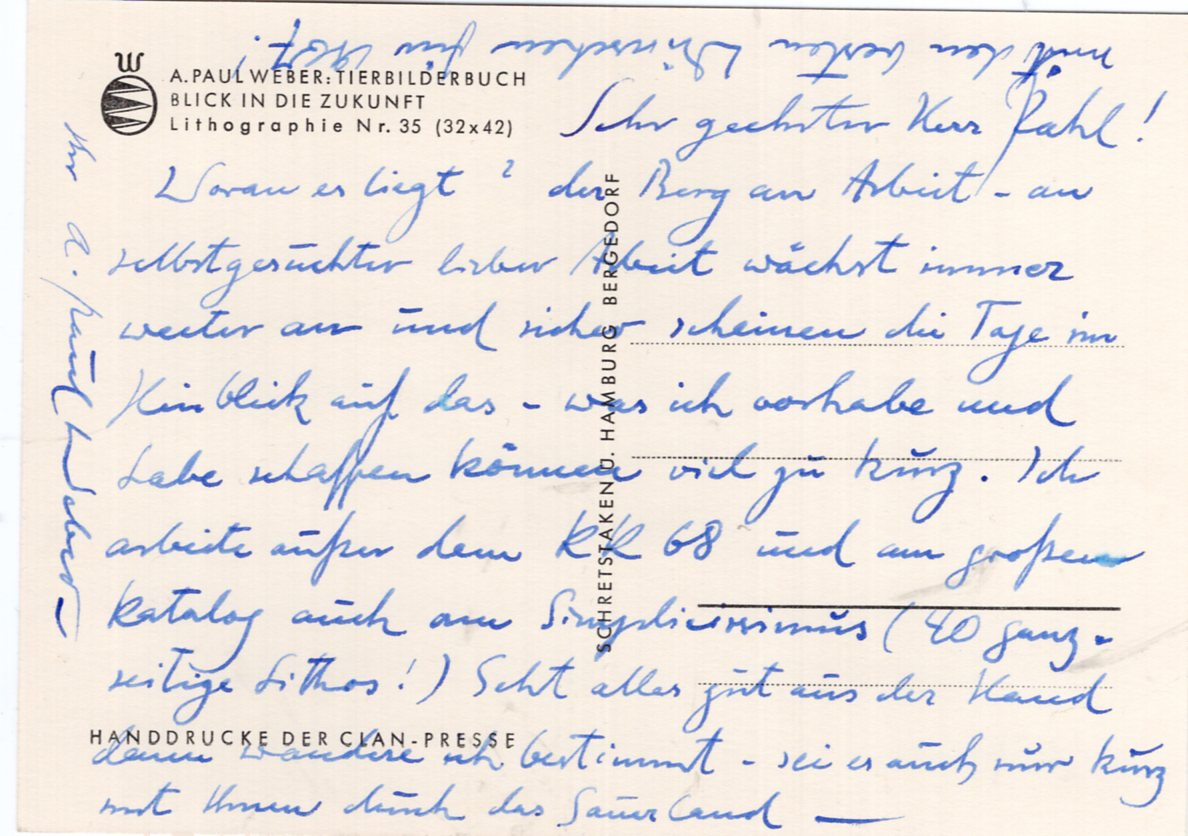 W
A. PAUL WEBER: TIERBILDERBUCH
BLICK IN DIE ZUKUNFT
Lithographie Nr. 35 (32x42)
Sehr geehrter Herr Pahl!
Woran es liegt? der Berg an Arbeit - an
selbstgesuchter lieber Arbeit wächst immer
weiter an und sicher scheinen die Tage im
Hinblick auf das - was ich vorhabe und
habe schaffen können viel zu kurz. Ich
arbeite außer dem KK 68 und am großen
Katalog auch am Simplicissimus (40 ganz-
seitige Lithos!) Geht alles gut aus der Hand
dann wandere ich bestimmt - sei es auch nur kurz
mit Ihnen durch das Sauerland —
mit den besten Wünschen für 1967!
Ihr A. Paul Weber
SCHRETSTAKEN U. HAMBURG BERGEDORF
HANDDRUCKE DER CLAN-PRESSE